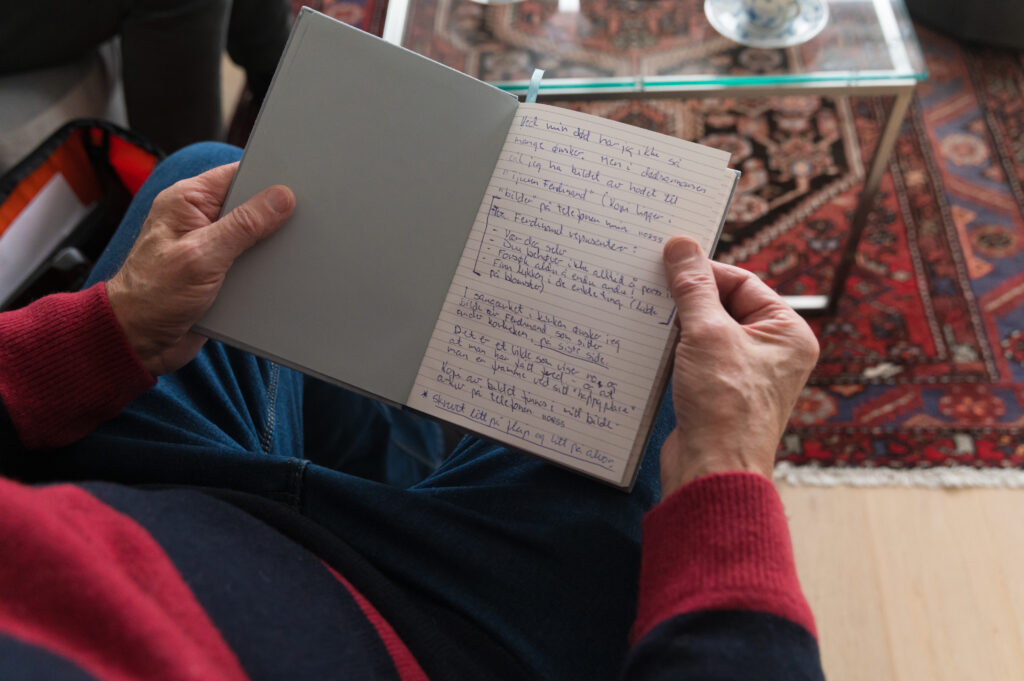 Ved min død har jeg ikke så
mange ønsker. Men i dødsannonsen
vil jeg ha bildet av hodet til
"Tyren Ferdinand" (kopi ligger i
"bilder" på telefonen min
For Ferdinand representer:
- Vær deg selv
- Du behøver ikke alltid å passe inn
- Forsøk aldri å endre andre
- Finn lykken i de enkle ting (lukte
på blomster)
I sangarket i kirken ønsker jeg
bilde av Ferdinand som sitter
under korktreet, på siste side.
Det er et bilde som viser ro, og
at man har fått fred, og at
man er fremme ved sitt "happy place"
Kopi av bildet finnes i mitt bilde-
arkiv på telefonen
* skrevet litt på flyp og litt på